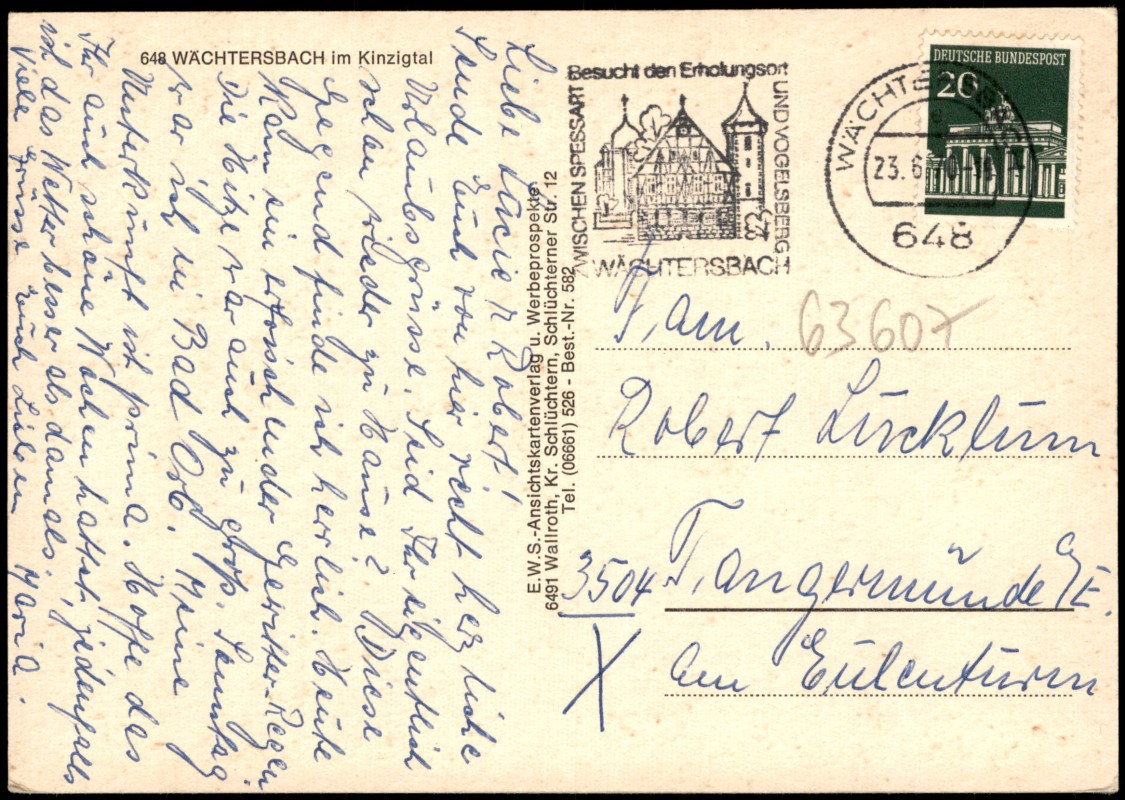 648 WÄCHTERSBACH im Kinzigtal
Liebe Lucie u. Robert!
Sende Euch von hier recht herzliche
Urlaubsgrüsse. Seid Ihr eigentlich
schon wieder zu Hause? Diese
Gegend finde ich herrlich. Heute
kam ein erfrischender Gewitter-Regen
Die Hitze war auch zu groß. Samstag
war ich in Bad Orb. Meine
Unterkunft ist prima. Hoffe das
Ihr auch schöne Wochen hattet, jedenfalls
ich das Wetter besser als damals.
Viele Grüsse Euch Lieben Maria.
E.W.S.-Ansichtskartenverlag u. Werbeprospekte
6491 Wallroth, Kr. Schlüchtern, Schlüchterner Str. 12
Tel. (06661) 526 - Best.-Nr. 582
Besucht den Erholungsort
ZWISCHEN SPESSART
UND VOGELSBERG
WÄCHTERSBACH
WÄCHTERSBACH
23. 6.
648
DEUTSCHE BUNDESPOST
20
Fam.
63607
Robert Lucklum
3504 Tangermünde/E.
am Eulenturm